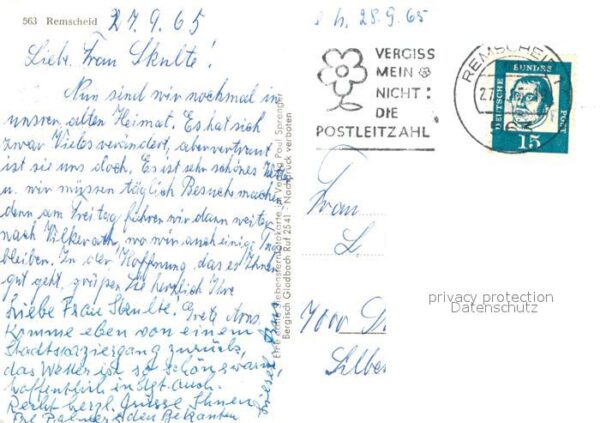 563 Remscheid 27.9.65
Liebe Frau Skulte!
Nun sind wir nochmal in
unsren alten Heimat. Es hat sich
zwar Vieles verändert, aber vertraut
ist sie uns doch. Es ist sehr schönes
u. wir müssen täglich Besuche machen
denn am Freitag führen wir dann weiter
nach Vilkerath, wo wir auch einige
bleiben. In der Hoffnung, das es Ihnen
gut geht, grüßen Sie herzlich Ihre
Liebe Frau Skulte! Gretz
Komme eben von einem
Stadtspaziergang zurück,
das Wetter ist so schön warm
hoffentlich in dgt. auch.
Recht herzl. Grüsse Ihnen
Frl. Palmer & den Bekannten
Verlag Paul Sprenger
Bergisch Gladbach Ruf 2541 · Nachdruck verboten
28.9.65
VERGISS
MEIN
NICHT:
DIE
POSTLEITZAHL
REMSCHEID
DEUTSCHE BUNDES POST
15
Frau
L.
7000
Silber
privacy protection
Datenschutz